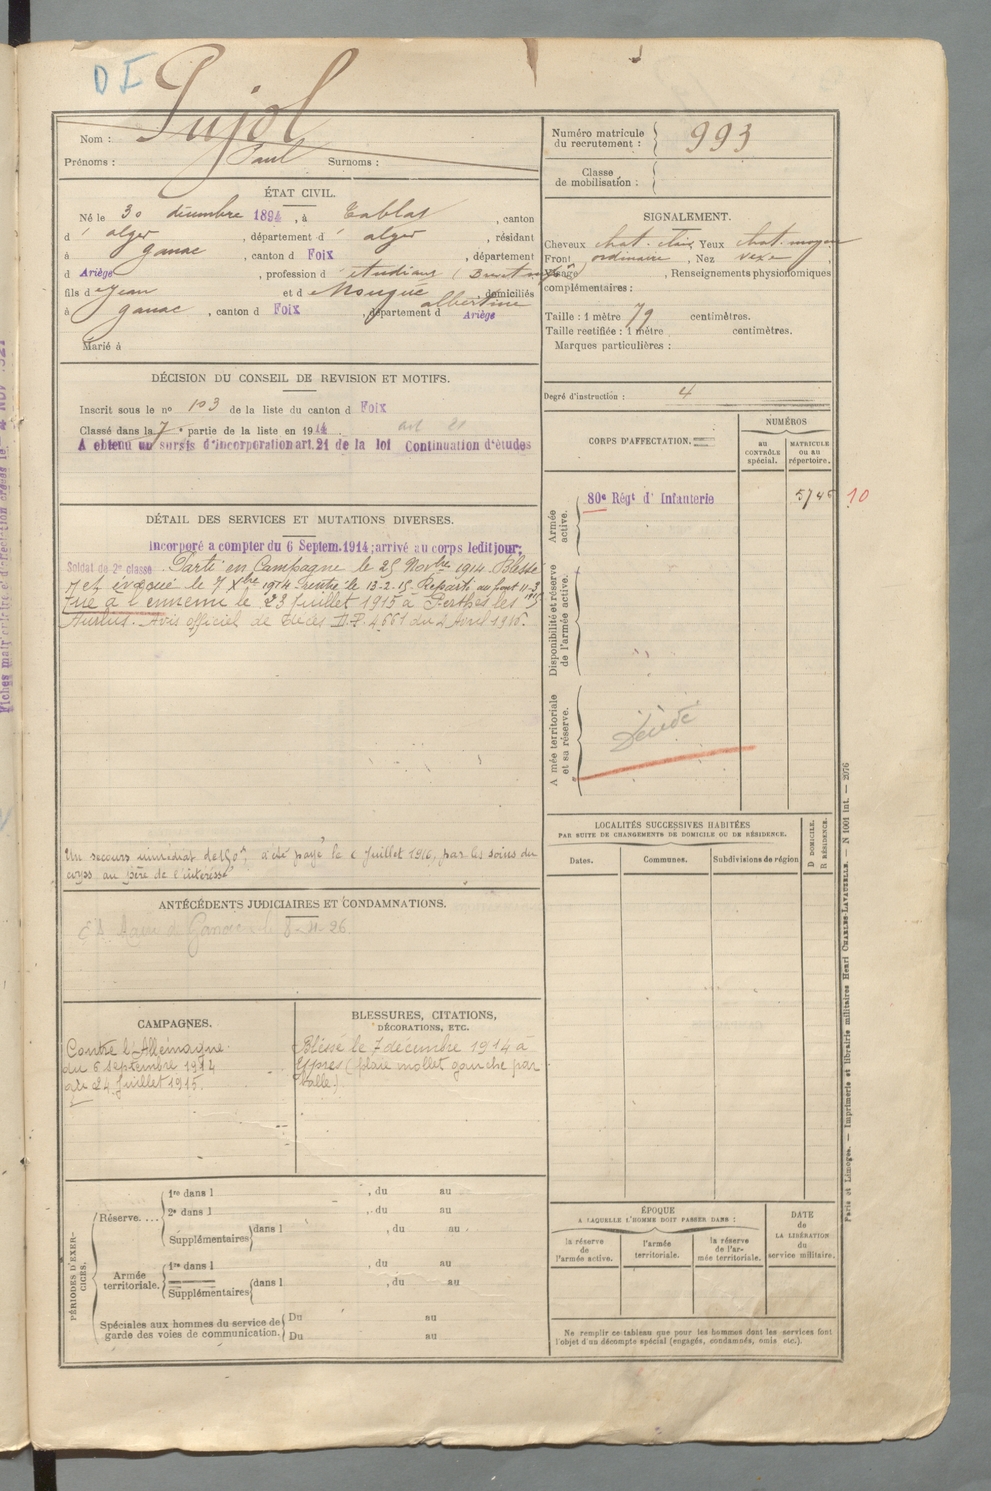 D I
Nom : Pujol
Prénoms : Paul Surnoms :
ÉTAT CIVIL.
Né le 30 décembre 1894, à Tablat, canton
d' alger, département d' alger, résidant
à ganac, canton d Foix, département
d Ariège, profession d' étudiant
fils de Jean et de Mouqué albertine domiciliés
à ganac, canton d Foix, département d Ariège
Marié à
DÉCISION DU CONSEIL DE REVISION ET MOTIFS.
Inscrit sous le n° 103 de la liste du canton d Foix
Classé dans la 7e partie de la liste en 1914. art 21
A obtenu un sursis d'incorporation art. 21 de la loi Continuation d'études
DÉTAIL DES SERVICES ET MUTATIONS DIVERSES.
Incorporé a compter du 6 Septem. 1914; arrivé au corps ledit jour;
Soldat de 2e classe. Parti en Campagne le 25 Novbre 1914. Blessé
et évacué le 7 Xbre 1914 rentré le 13-2-15 Reparti au front 11-3
1915
Tué à l'ennemi le 23 Juillet 1915 à Perthes les
Hurlus. Avis officiel de décès D.P. 4661 du 4 Avril 1916.
Un secours immédiat de 150f, a été payé le Juillet 1916, par les soins du
corps au père de l'intéressé
ANTÉCÉDENTS JUDICIAIRES ET CONDAMNATIONS.
Maire de Ganac 26
CAMPAGNES.
Contre l'Allemagne
du 6 septembre 1914
au 24 Juillet 1915.
BLESSURES, CITATIONS,
DÉCORATIONS, ETC.
Blessé le 7 décembre 1914 à
Ypres (plaie mollet gauche par
balle).
PÉRIODES D'EXERCICES.
Réserve....
1re dans l , du au
2e dans l , du au
Supplémentaires dans l , du au
Armée territoriale.
1re dans l , du au
Supplémentaires dans l , du au
Spéciales aux hommes du service de garde des voies de communication.
Du au
Du au
Numéro matricule du recrutement : 993
Classe de mobilisation :
SIGNALEMENT.
Cheveux chat. clair Yeux chat. moyen
Front ordinaire, Nez vexe,
Visage , Renseignements physionomiques
complémentaires :
Taille : 1 mètre 79 centimètres.
Taille rectifiée : 1 mètre centimètres.
Marques particulières :
Degré d'instruction : 4
CORPS D'AFFECTATION.
NUMÉROS
AU CONTRÔLE spécial.
MATRICULE OU AU répertoire.
Armée active.
80e Régt d' Infanterie 10
Disponibilité et réserve de l'armée active.
Armée territoriale et sa réserve.
Décédé
LOCALITÉS SUCCESSIVES HABITÉES
PAR SUITE DE CHANGEMENTS DE DOMICILE OU DE RÉSIDENCE.
Dates. Communes. Subdivisions de région
D DOMICILE.
R RÉSIDENCE.
ÉPOQUE
A LAQUELLE L'HOMME DOIT PASSER DANS :
la réserve de l'armée active.
l'armée territoriale.
la réserve de l'armée territoriale.
DATE de LA LIBÉRATION du service militaire.
Ne remplir ce tableau que pour les hommes dont les services font
l'objet d'un décompte spécial (engagés, condamnés, omis etc.).
Paris et Limoges. — Imprimerie et librairie militaires Henri CHARLES-LAVAUZELLE. — N 1001 int. — 2076